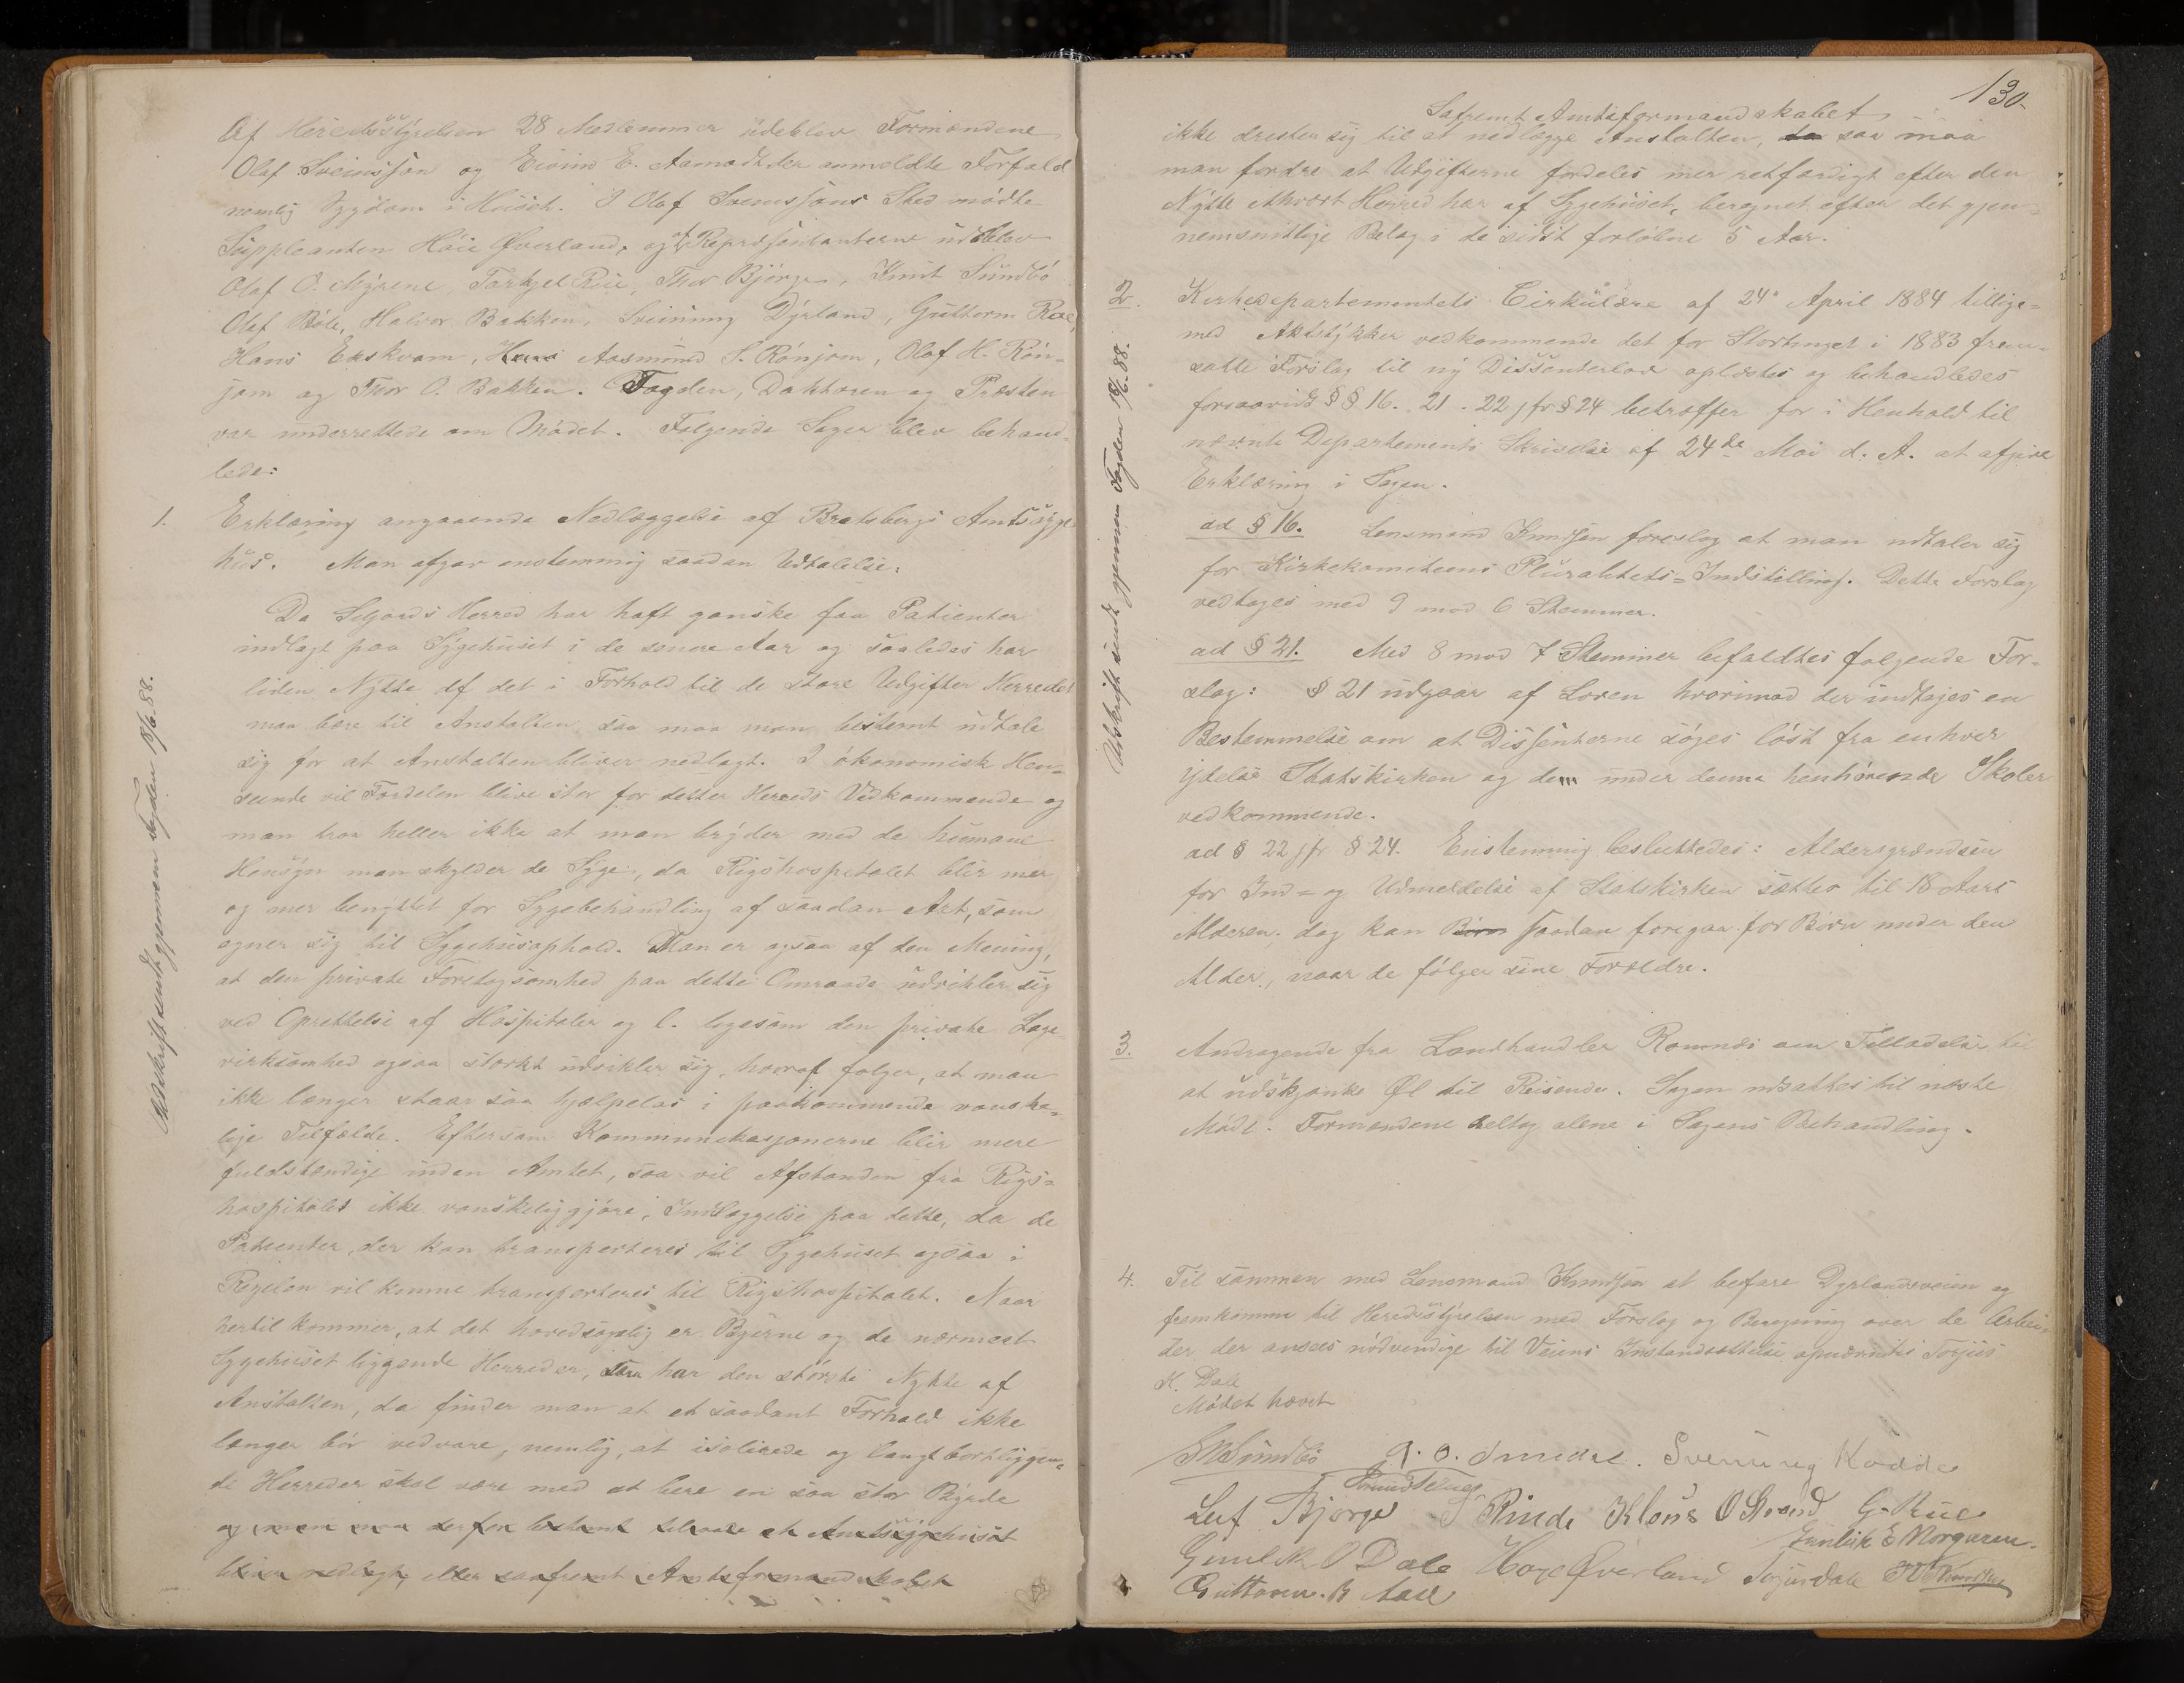 Af Heredsstyrelsen 28 Medlemmer udeblev Formændene
Olaf Sveinsson og Eivind E. Aamodt der anmeldte Forfald
nemlig Sygdom i Huset. I Olaf Sveinssons Sted mødte
Suppleanten Haie Øverland, og af Repræsentanterne udeblev
Olaf O. Myrene, Tarkjel Rue, Thor Bjørge, Knut Sundbö
Olaf Böle, Halvor Bakken, Sveinung Dyrland, Guttorm Roe,
Hans Ekskvam, Hans Aasmund S. Rönjom, Olaf H. Rön-
jom og Thor O. Bakken. Fogden, Doktoren og Præsten
var underrettede om Mødet. Følgende Sager blev behand-
lede:
1. Erklæring angaaende Nedlæggelse af Bratsbergs Amtssyge
hus. Man afgav enstemmig saadan Udtalelse:
Da Seljords Herred har haft ganske faa Patienter
indlagt paa Sygehuset i de senere Aar og saaledes har
liden Nytte af det i Forhold til de store Udgifter Herredet
maa bære til Anstalten saa maa man bestemt udtale
sig for at Anstalten bliver nedlagt. I økonomisk Hen-
seende vil Fordelen blive stor for dette Herreds Vedkommende og
man tror heller ikke at man bryder med de humane
Hensyn man skylder de Syge, da Rigshospitalet blir mer
og mer benyttet for Sygebehandling af saadan Art, som
egner sig til Sygehusophold. Man er ogsaa af den Mening,
at den private Foretagsomhed paa dette Omraade udvikler sig
ved Oprettelse af Hospitaler og l. ligesom den private Læge
virksomhed ogsaa stærkt udvikler sig, hvoraf følger, at man
ikke længer staar saa hjælpeløs i paakommende vanske-
lige Tilfælde. Eftersom Kommunikasjonerne blir mere
fuldstændige inden Amtet, saa vil Afstanden fra Rigs-
hospitalet ikke vanskeliggjøre Indlæggelse paa dette, da de
Patienter, der kan transporteres til Sygehuset ogsaa i
Regelen vil kunne transporteres til Rigshospitalet. Naar
hertil kommer, at det hovedsagelig er Byerne og de nærmest
Sygehuset liggende Herreder, som har den største Nytte af
Anstalten, da finder man at et saadant Forhold ikke
længer bør vedvare, nemlig, at isolerede og langt bortliggen-
de Herreder skal være med at bere en saa stor Byrde
og man maa derfor bestemt tilraade at Amtssygehuset
bliver nedlagt, eller saafremt Amtsformandskabet
Udskrift sendt gjennem Fogden 18/6.88.
130
Safremt Amtsformandskabet
ikke drister sig til at nedlægge Anstalten, da saa maa
man fordre at Udgifterne fordeles mer retfærdigt efter den
Nytte ethvert Herred har af Sygehuset, beregnet efter det gjen-
nemsnitlige Belæg i de sidst forløbne 5 Aar.
2. Kirkedepartementets Cirkulære af 24 April 1884 tillige-
med Aktstykker vedkommende det for Stortinget i 1883 frem-
satte Forslag til ny Dissenterlov oplæstes og behandledes
forsaavidt §§ 16. 21. 22 jfr § 24 betræffer for i Henhold til
nævnte Departements Skrivelse af 24de Mai d. A. at afgive
Erklæring i Sagen.
ad § 16. Lensmand Knudsen foreslog at man udtaler sig
for Kirkekomiteens Pluralitets-Indstilling. Dette Forslag
vedtoges med 9 mod 6 Stemmer.
ad § 21. Med 8 mod 7 Stemmer befaldtes følgende For-
slag: § 21 udgaar af Loven hvorimod der indtages en
Bestemmelse om at Dissenterne søges løst fra enhver
ydelse Statskirken og dem under denne henhørende Skoler
vedkommende.
ad § 22 jfr § 24. Enstemmig besluttedes: Aldersgrændsen
for Ind- og Udmeldelse af Statskirken sættes til 18 Aars
Alderen, dog kan Børn saadan foregaa for Børn under den
Alder, naar de følger sine Forældre.
3. Andragende fra Landhandler Romnæs om Tilladelse til
at udskjænke Øl til Reisende. Sagen udsattes til næste
Møde. Formændene deltog alene i Sagens Behandling.
4. Til sammen med Lensmand Knudsen at befare Dyrlandsveien og
fremkomme til Heredsstyrelsen med Forslag og Beregning over de Arbei-
der der ansees nødvendige til Veiens Istandsættelse opnævntes Torjus
K. Dale
Mødet hævet
Udskrift sendt gjennem Fogden 18/6.88.
Sundbö G. O. Smedal. Svenung Kødde
Leif Bjørge Rinde Klous O Strand G. Rue
Gunleik E Norgaren.
O Dale Haie Øverland Torjus Dale K Knudsen
Guttorm. R Aase